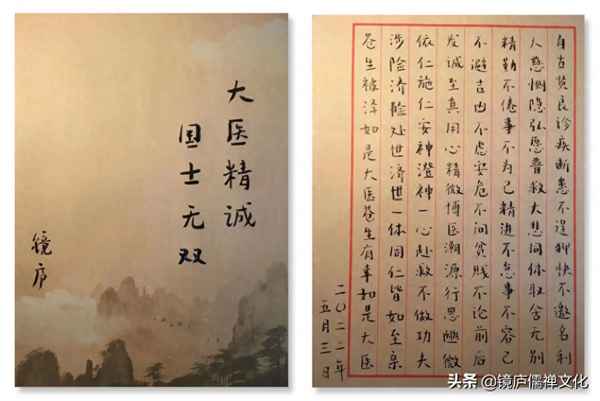 大医精诚
国士无双
镜庐
自古贤良诊疾断患不逞聊快不邀名利
人慈恻隐弘愿普救大悲同体取舍无别
精勤不倦事不为己精进不怠事不容己
不避吉凶不虑安危不问贫贱不论前后
发诚至真用心精微博医溯源行思极微
依仁施仁安神澄神一心赴救不做功夫
涉险济险处世济世一体同仁皆如至亲
苍生被泽如是大医苍生有幸如是大医
二〇二二年
五月三日
头条 @镜庐儒禅文化